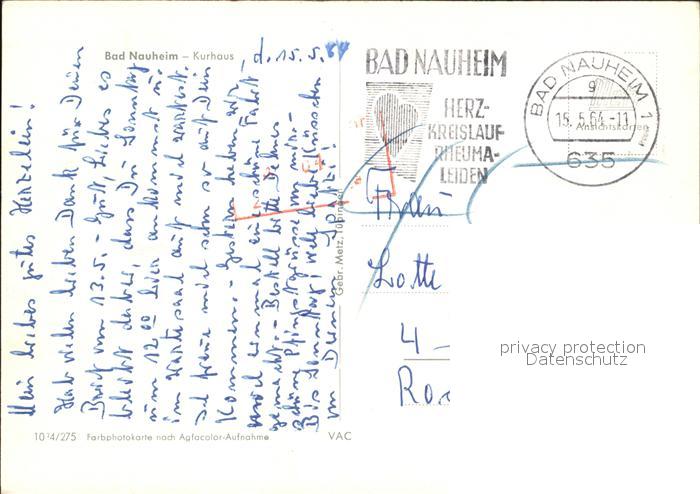 Bad Nauheim – Kurhaus
d. 15.5.64
Mein liebes gutes Herzelein!
Hab vielen lieben Dank für Deinen
Brief vom 13.5. – Gut, Liebes es
bleibt dabei, dass Du Sonntag
um 12 00 hier ankommst u.
im Wartesaal auf mich wartest.
Ich freue mich sehr so auf Dein
Kommen. – Gestern haben wir
noch einmal eine schöne Fahrt
gemacht. – Bestell bitte Deinen
schöne Pfingstgrüsse von mir. –
Bis Sonntag! Viele liebe Küsschen
von Deinem
Gebr. Metz, Tübingen
10 14/275 Farbphotokarte nach Agfacolor-Aufnahme
VAC
BAD NAUHEIM
HERZ-
KREISLAUF
RHEUMA-
LEIDEN
BAD NAUHEIM 1
g
15.5.64.-11
635
Ansichtskarten
Lotte
4 –
privacy protection
Datenschutz